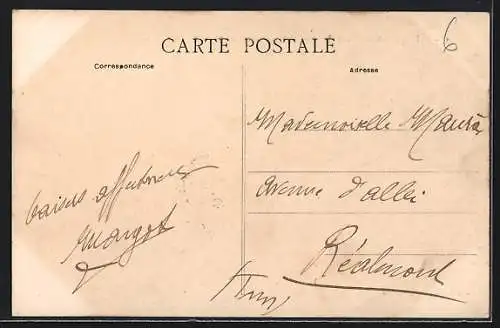 6
CARTE POSTALE
Correspondance
Adresse
Mademoiselle
Avenue d'albi
baisers affectueux
Margot
Réalmont
Tarn